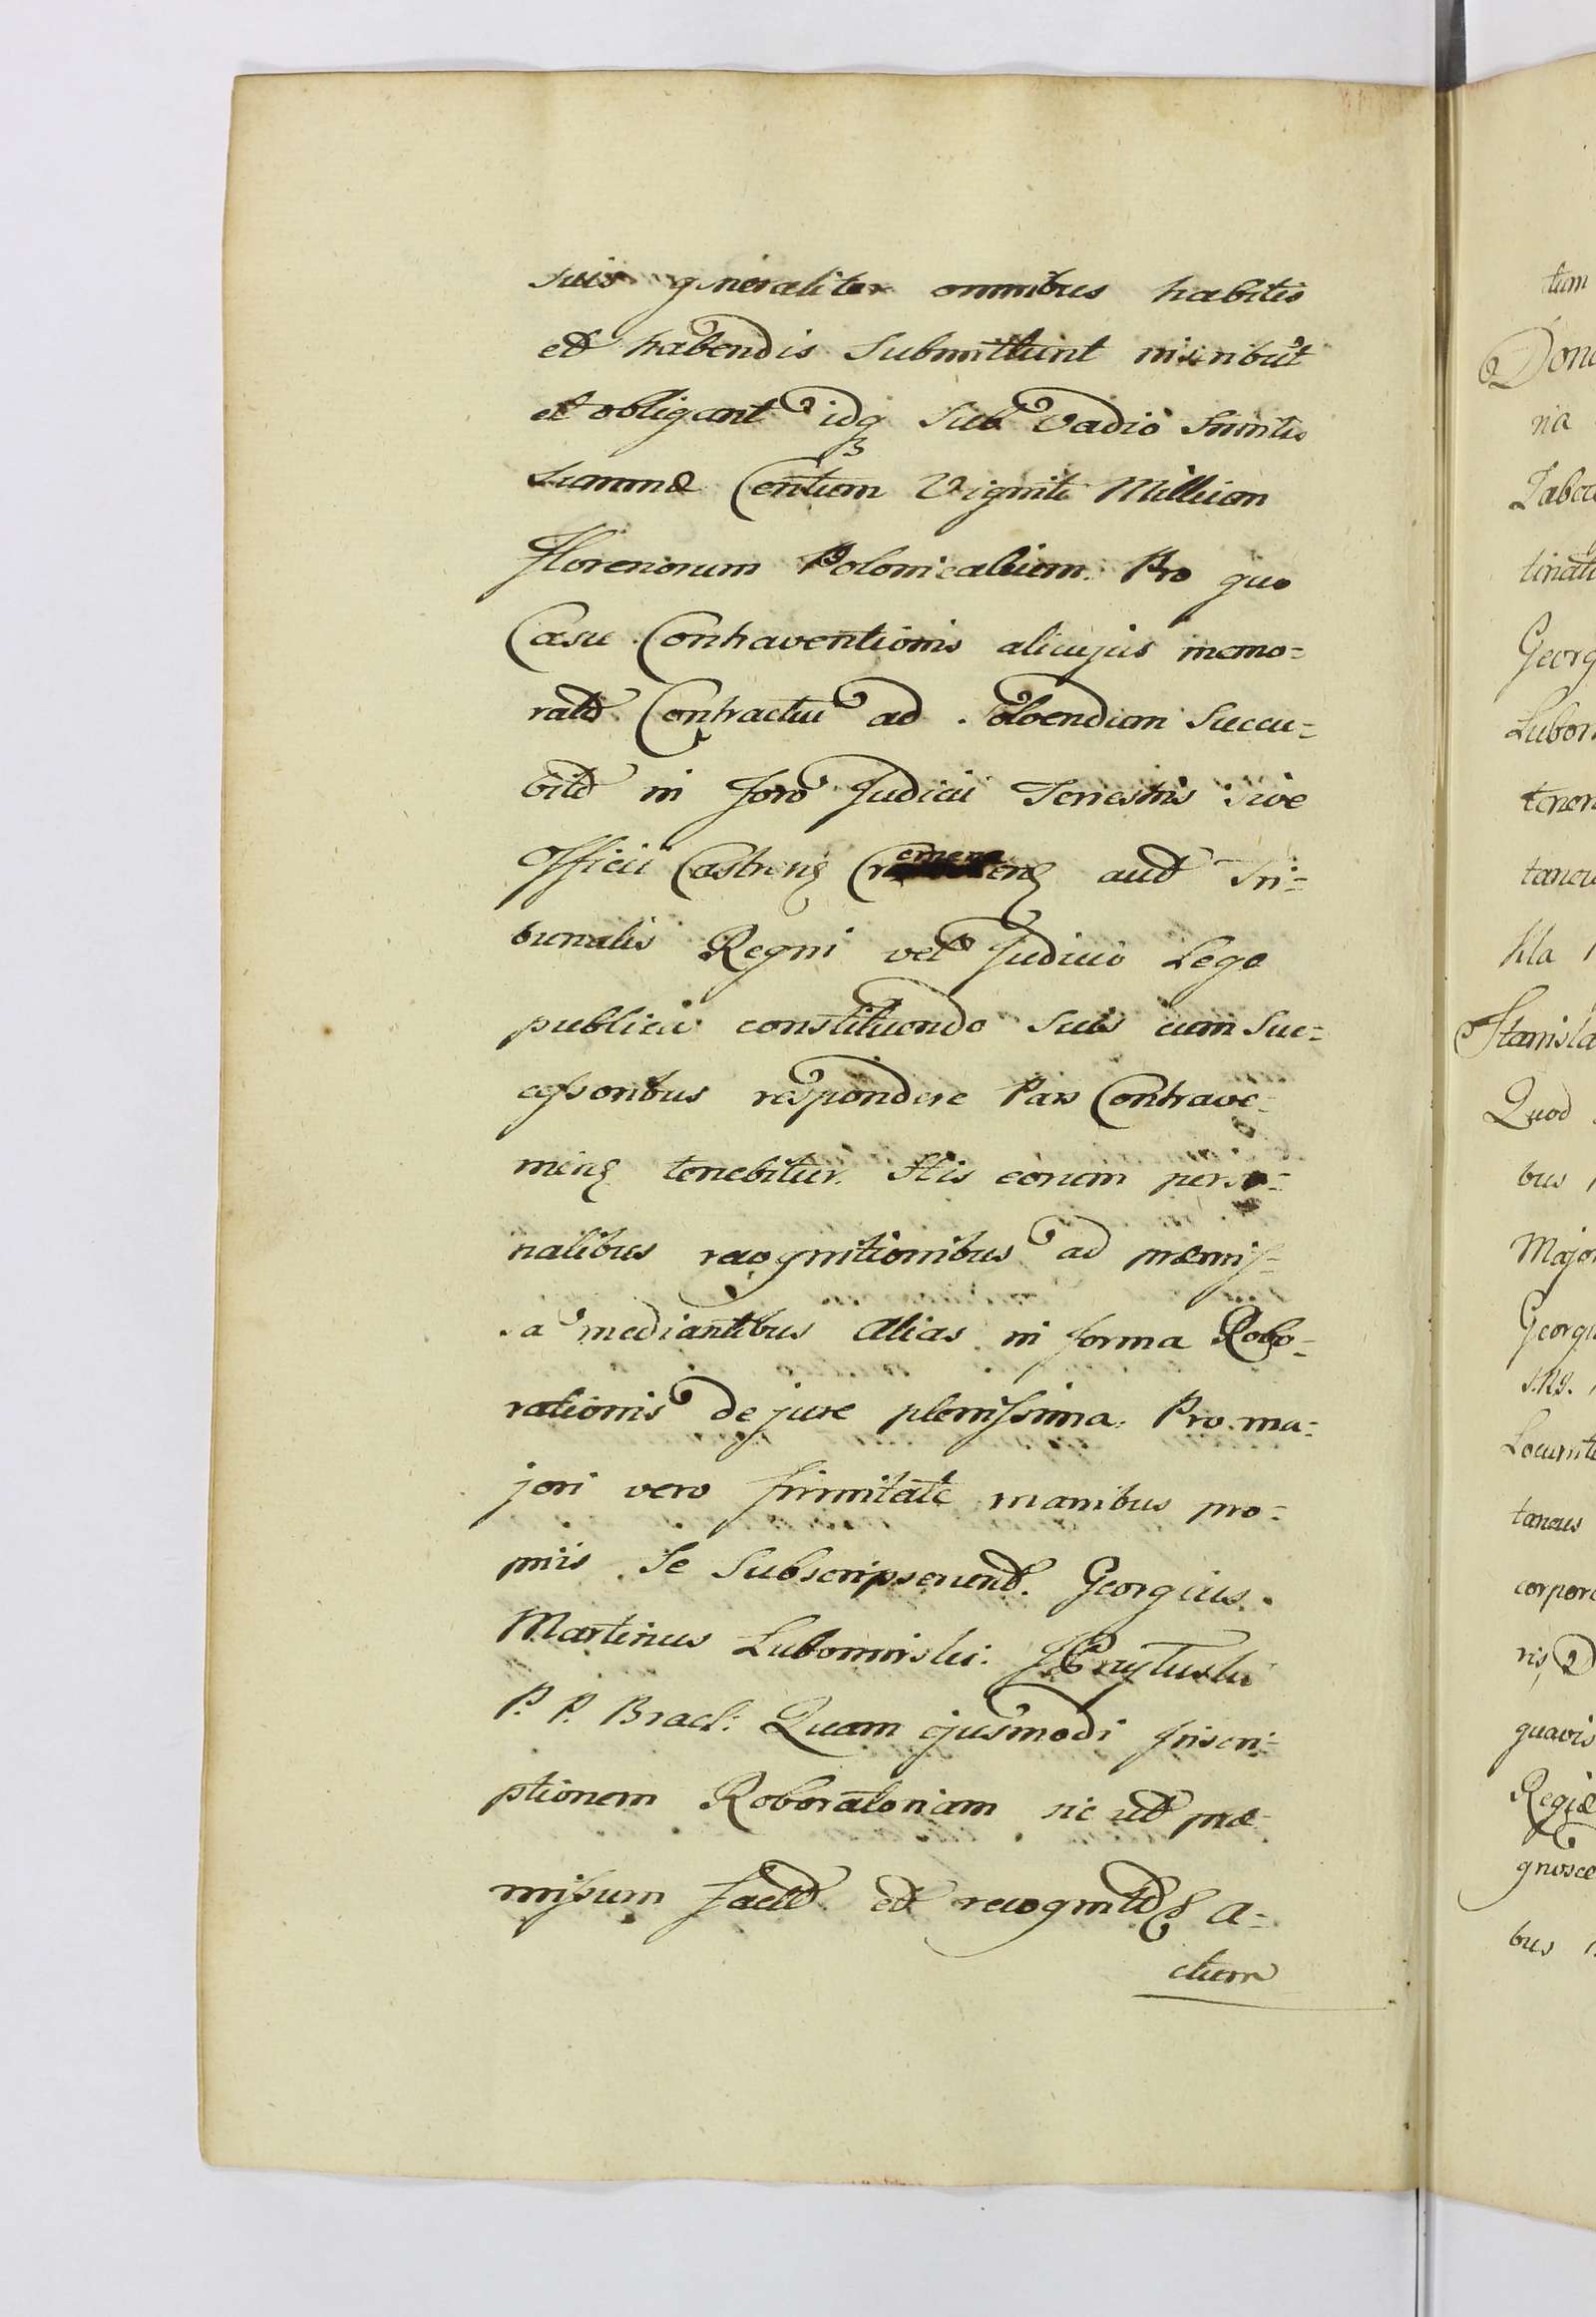 suis generaliter omnibus habitis
et habendis Submittunt inscribūt
et obligant idq3 Sub Vadio Similis
Summæ Centum Viginti Millium
Florenorum Polonicalium. Pro quo
Casu Contraventionis alicujus memo=
rato Contractui ad Solvendum Succu=
bito in foro Judicii Terrestris sive
Officii Castren Cremenen aut Tri=
bunalis Regni vel Judicio Lege
publica constituendo Suis cum Suc=
cessoribus respondere Pars Contrave=
niens tenebitur. His eorum perso=
nalibus recognitionibus ad præmis=
sa mediantibus Alias in forma Robo=
rationis de jure plenissima. Pro ma=
jori vero firmitate manibus pro=
priis Se Subscripserunt. Georgius
Martinus Lubomirski.
P. P. Bracl: Quam ejusmodi Inscri=
ptionem Roboratoriam sic ut præ=
missum et A=
ctum
tum
Done
ria
tinat
Georg
Lubom
tenen
taneu
Stanisla
Quod
bus
Major
Georgi
Locumte
taneus
corpore
ris
quavis
Regiæ
gnosce
bus